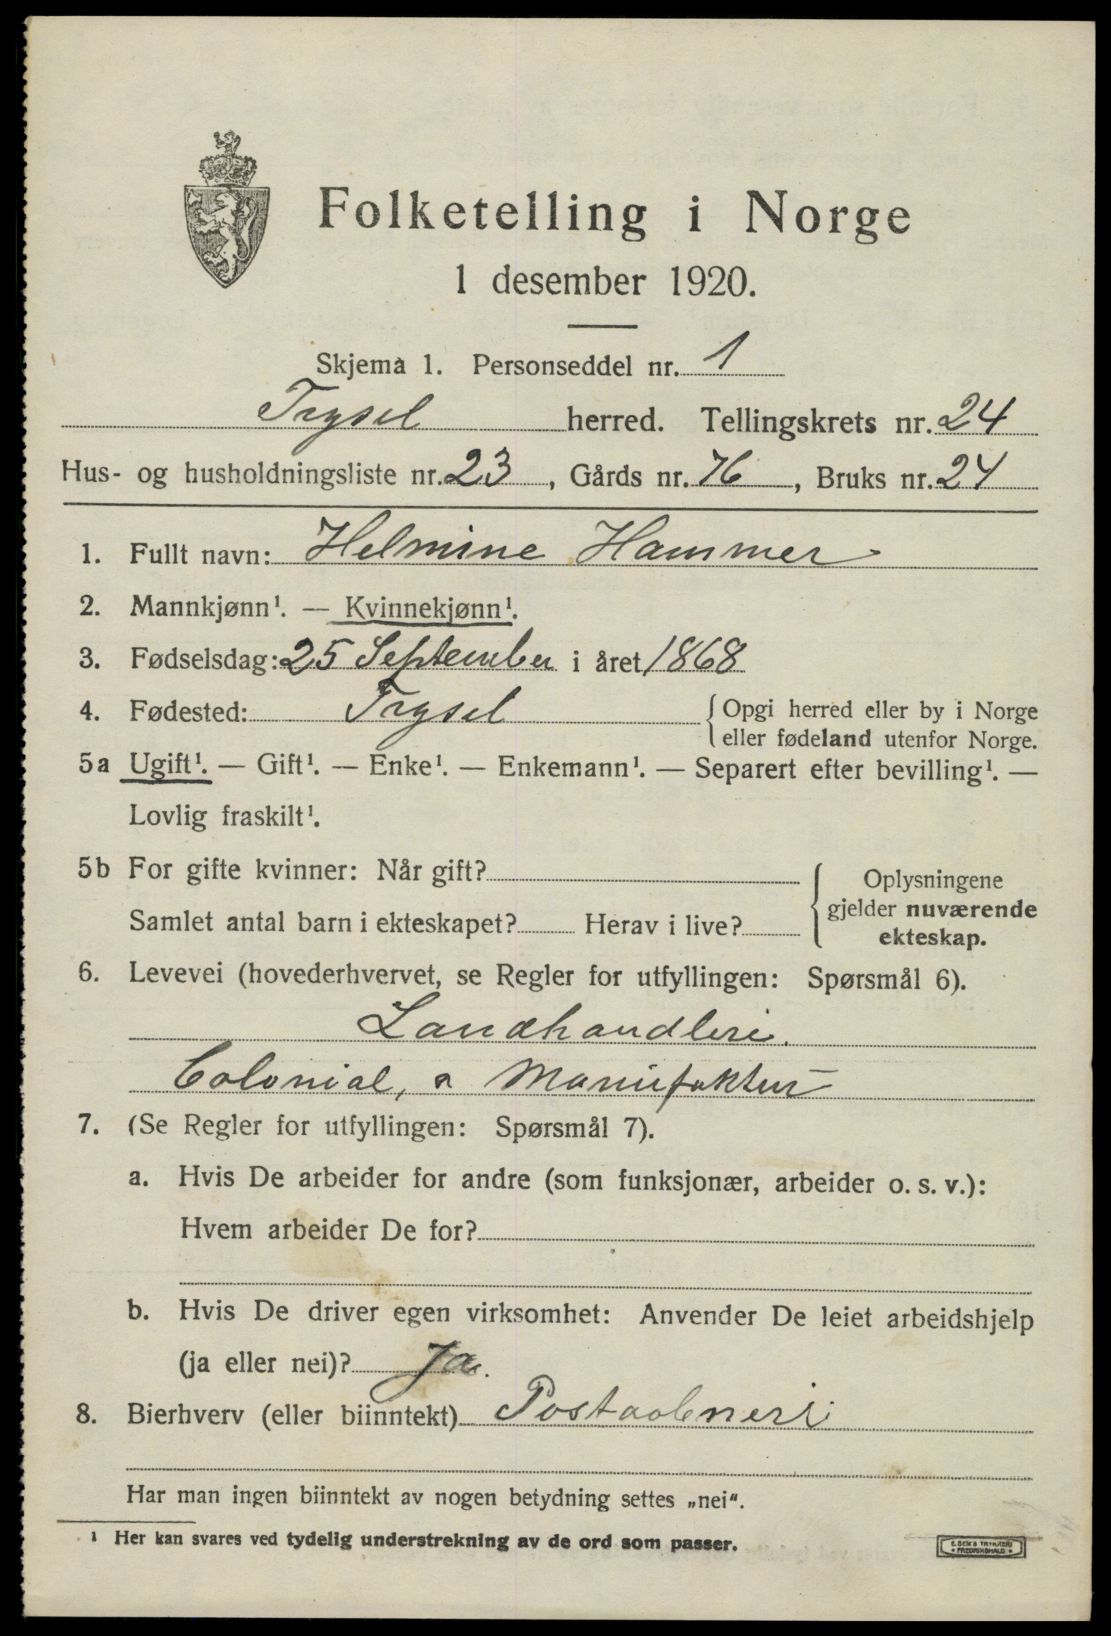 Folketelling i Norge
1 desember 1920.
Skjema 1. Personseddel nr. 1
Trysel herred. Tellingskrets nr. 24
Hus- og husholdningsliste nr. 23, Gårds nr. 76, Bruks nr. 24
1. Fullt navn: Helmine Hammer
2. Mannkjønn¹. — Kvinnekjønn¹.
3. Fødselsdag: 25 September i året 1868
4. Fødested: Trysel { Opgi herred eller by i Norge
eller fødeland utenfor Norge.
5a Ugift¹. — Gift¹. — Enke¹. — Enkemann¹. — Separert efter bevilling¹. —
Lovlig fraskilt¹.
5b For gifte kvinner: Når gift?
Samlet antal barn i ekteskapet? Herav i live?
{ Oplysningene
gjelder nuværende
ekteskap.
6. Levevei (hovederhvervet, se Regler for utfyllingen: Spørsmål 6).
Landhandleri.
Colonial, a Manufaktur
7. (Se Regler for utfyllingen: Spørsmål 7).
a. Hvis De arbeider for andre (som funksjonær, arbeider o. s. v.):
Hvem arbeider De for?
b. Hvis De driver egen virksomhet: Anvender De leiet arbeidshjelp
(ja eller nei)? Ja.
8. Bierhverv (eller biinntekt) Postaabneri
Har man ingen biinntekt av nogen betydning settes „nei“.
¹ Her kan svares ved tydelig understrekning av de ord som passer.
E. SEM'S TRYKKERI
FREDRIKSHALD